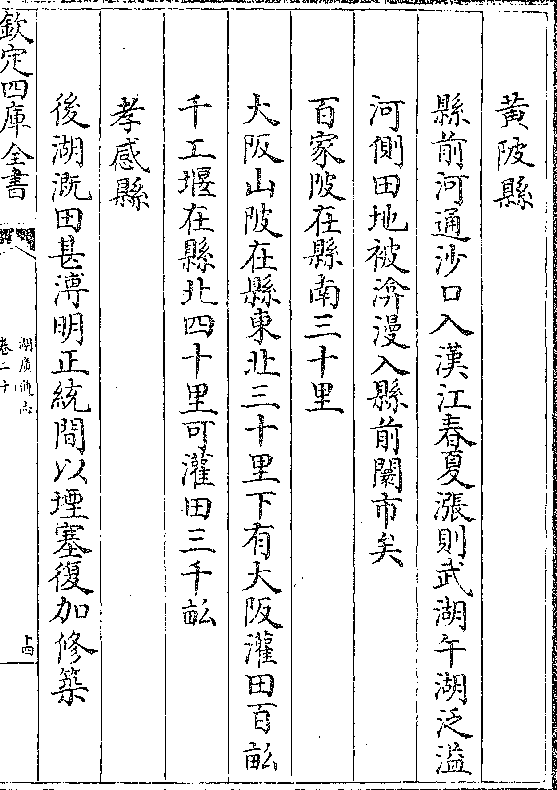 黃陂縣
縣前河通沙口入漢江春夏漲則武湖午湖泛溢
河側田地被渰漫入縣前闤市矣
百家陂在縣南三十里
大阪山陂在縣東北三十里下有大阪灌田百畝
千工堰在縣北四十里可灌田三千畝
孝感縣
後湖溉田甚溥明正統間以堙塞復加修築
欽定四庫全書
湖廣通志
卷二十